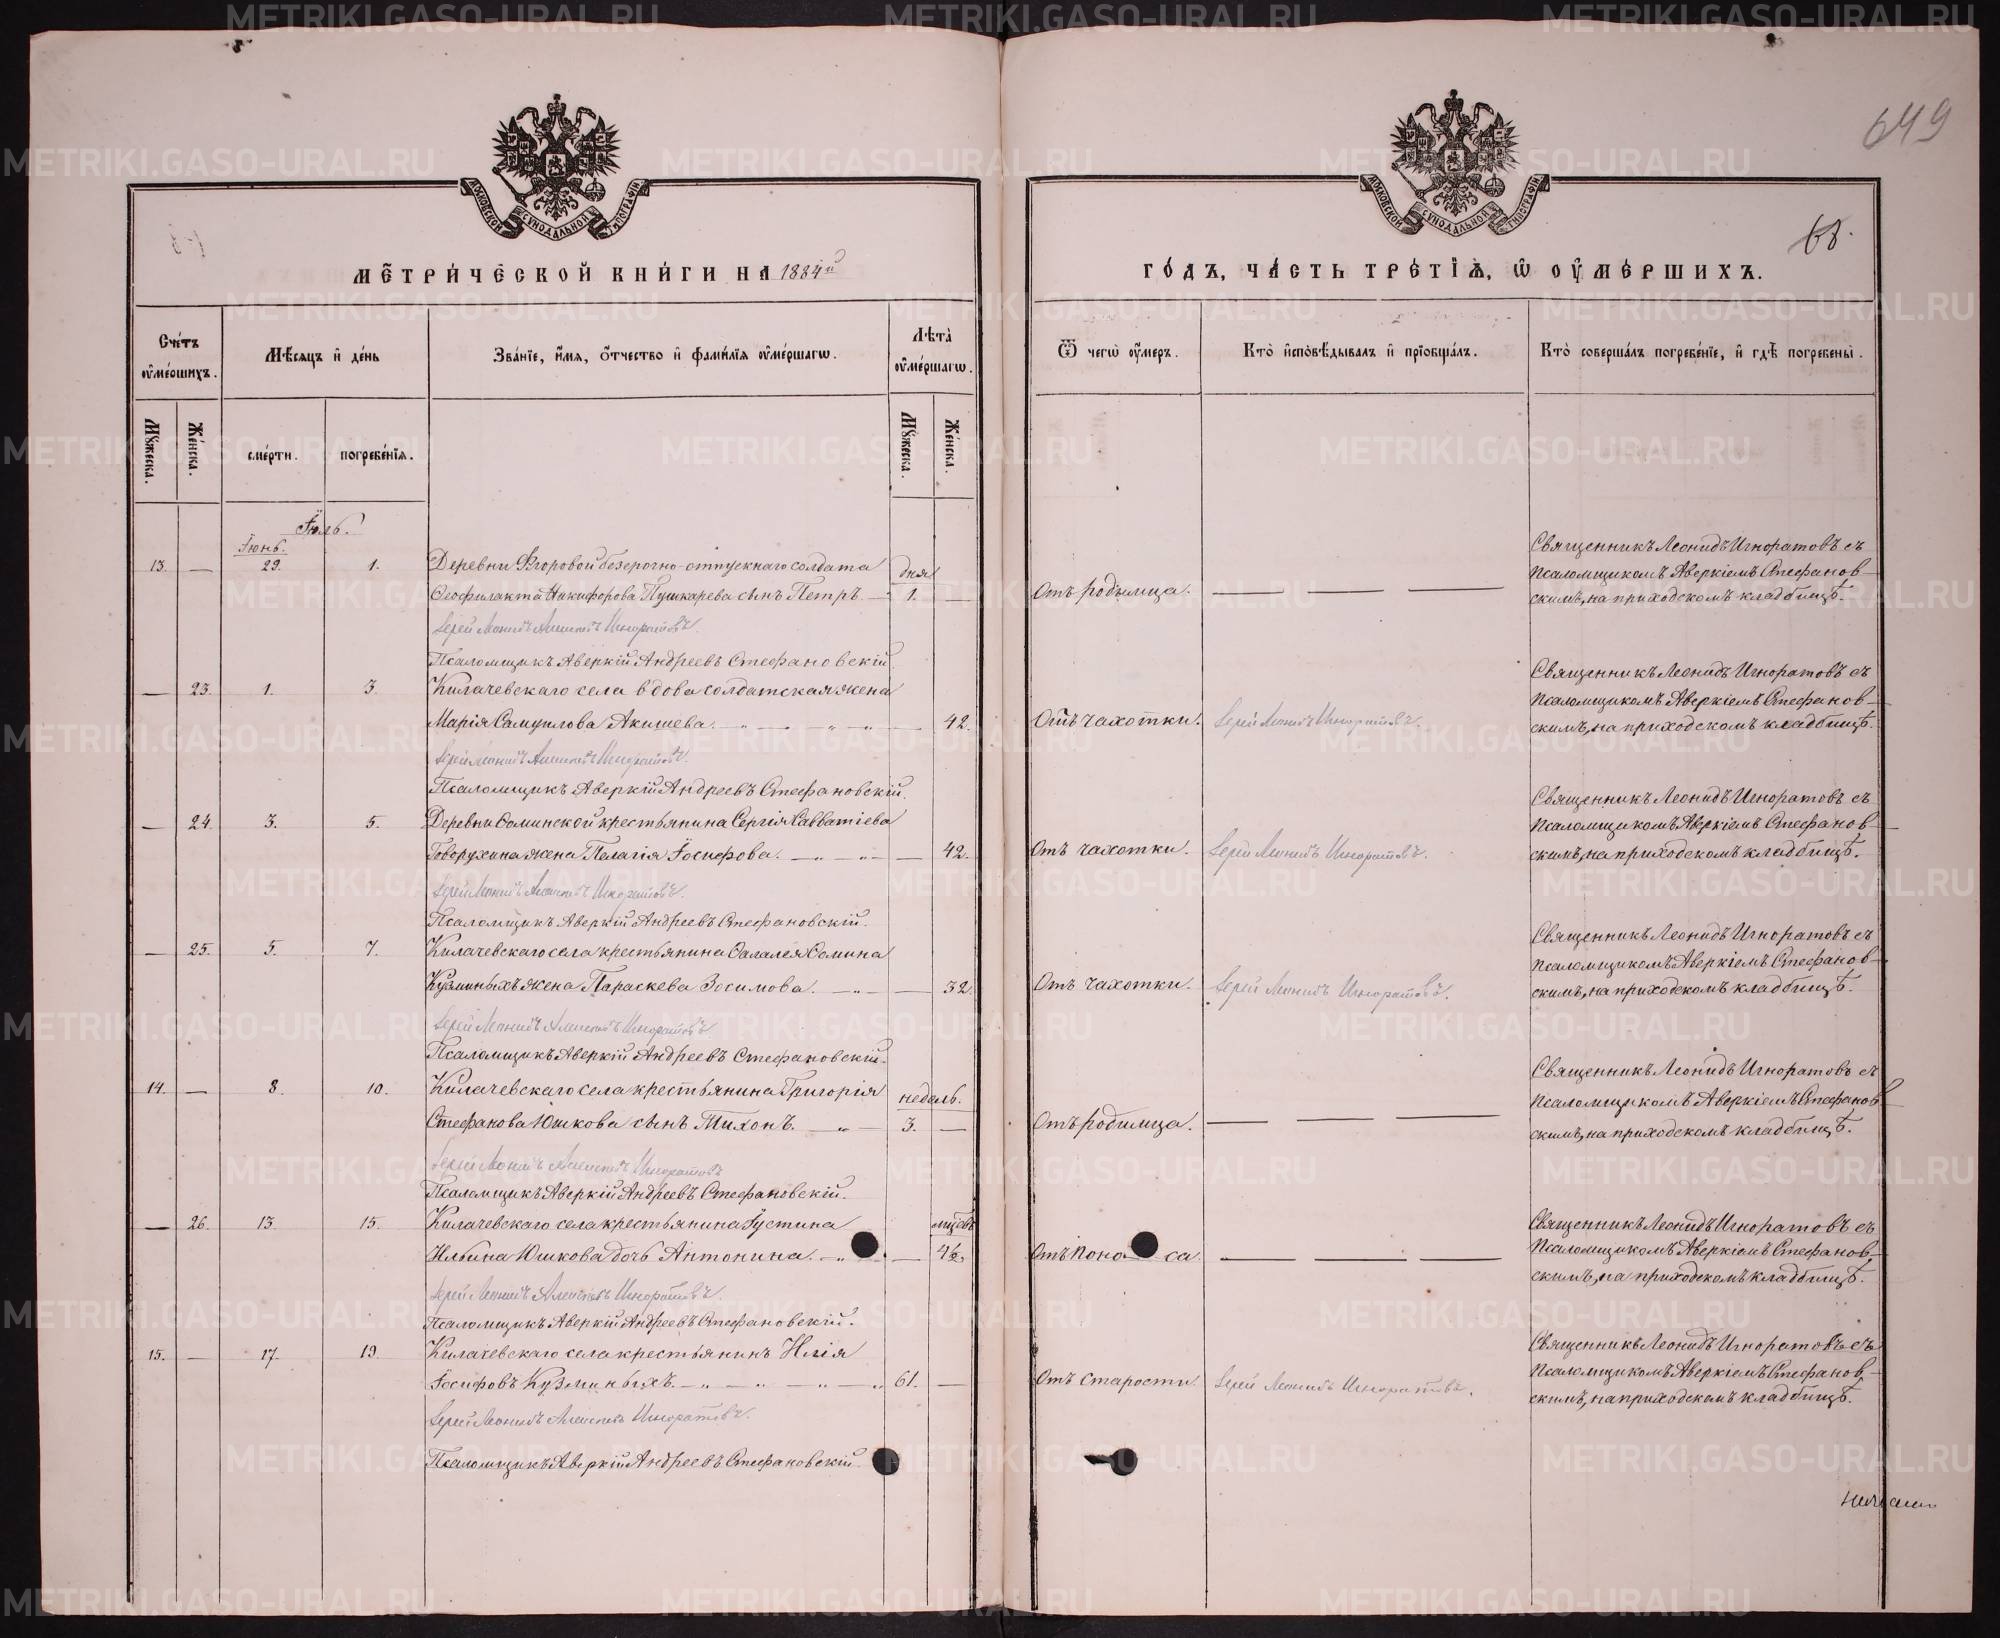 649
68.
МОСКОВСКОЙ СУНОДАЛЬНОЙ ТИПОГРАФІИ
МОСКОВСКОЙ СУНОДАЛЬНОЙ ТИПОГРАФІИ
МЕТРИЧЕСКОЙ КНИГИ НА 1884й
ГОДЪ, ЧАСТЬ ТРЕТІЯ, Ѡ ОУМЕРШИХЪ.
Счетъ оумершихъ.
Мѣсяцъ и день
Званіе, имя, отчество и фамилія оумершагѡ.
Лѣта оумершагѡ.
Ѿ чегѡ оумеръ.
Кто исповѣдывалъ и пріобщалъ.
Кто совершалъ погребеніе, и гдѣ погребены.
Мужеска. Женска. смерти. погребенія. Мужеска. Женска.
Іюль.
Іюнь.
13. — 29. 1. Деревни Ѳгоровой безсрочно-отпускнаго солдата дня
Ѳеофилакта Никифорова Пушкарева сынъ Петръ. — 1. —
Отъ родимца. — — —
Священникъ Леонидъ Игноратовъ съ
Псаломщикомъ Аверкіемъ Стефанов-
скимъ, на приходскомъ кладбищѣ.
Іерей Леонидъ Алексѣевъ Игноратовъ.
Псаломщикъ Аверкій Андреевъ Стефановскій.
— 23. 1. 3. Килачевскаго села вдова солдатская жена
Марія Самуилова Акишева. — 42.
Отъ чахотки. Іерей Леонидъ Игноратовъ.
Священникъ Леонидъ Игноратовъ съ
Псаломщикомъ Аверкіемъ Стефанов-
скимъ, на приходскомъ кладбищѣ.
Іерей Леонидъ Алексѣевъ Игноратовъ.
Псаломщикъ Аверкій Андреевъ Стефановскій.
— 24. 3. 5. Деревни Ѳоминской крестьянина Сергія Савватіева
Говорухина жена Пелагія Іосифова. — 42.
Отъ чахотки. Іерей Леонидъ Игноратовъ.
Священникъ Леонидъ Игноратовъ съ
Псаломщикомъ Аверкіемъ Стефанов-
скимъ, на приходскомъ кладбищѣ.
Іерей Леонидъ Алексѣевъ Игноратовъ.
Псаломщикъ Аверкій Андреевъ Стефановскій.
— 25. 5. 7. Килачевскаго села крестьянина Ѳалалея Ѳомина
Кузминыхъ жена Параскева Зосимова. — 32.
Отъ чахотки. Іерей Леонидъ Игноратовъ.
Священникъ Леонидъ Игноратовъ съ
Псаломщикомъ Аверкіемъ Стефанов-
скимъ, на приходскомъ кладбищѣ.
Іерей Леонидъ Алексѣевъ Игноратовъ
Псаломщикъ Аверкій Андреевъ Стефановскій.
14. — 8. 10. Килачевскаго села крестьянина Григорія недѣль.
Стефанова Юшкова сынъ Тихонъ. — 3. —
Отъ родимца. — — —
Священникъ Леонидъ Игноратовъ съ
Псаломщикомъ Аверкіемъ Стефанов-
скимъ, на приходскомъ кладбищѣ.
Іерей Леонидъ Алексѣевъ Игноратовъ
Псаломщикъ Аверкій Андреевъ Стефановскій.
— 26. 13. 15. Килачевскаго села крестьянина Іустина мцевъ
Ильина Юшкова дочь Антонина. — 4½
Отъ поноса. — — —
Священникъ Леонидъ Игноратовъ съ
Псаломщикомъ Аверкіемъ Стефанов-
скимъ, на приходскомъ кладбищѣ.
Іерей Леонидъ Алексѣевъ Игноратовъ.
Псаломщикъ Аверкій Андреевъ Стефановскій.
15. — 17. 19. Килачевскаго села крестьянинъ Илія
Іосифовъ Кузминыхъ. — 61. —
Отъ старости. Іерей Леонидъ Игноратовъ.
Священникъ Леонидъ Игноратовъ съ
Псаломщикомъ Аверкіемъ Стефанов-
скимъ, на приходскомъ кладбищѣ.
Іерей Леонидъ Алексѣевъ Игноратовъ.
Псаломщикъ Аверкій Андреевъ Стефановскій